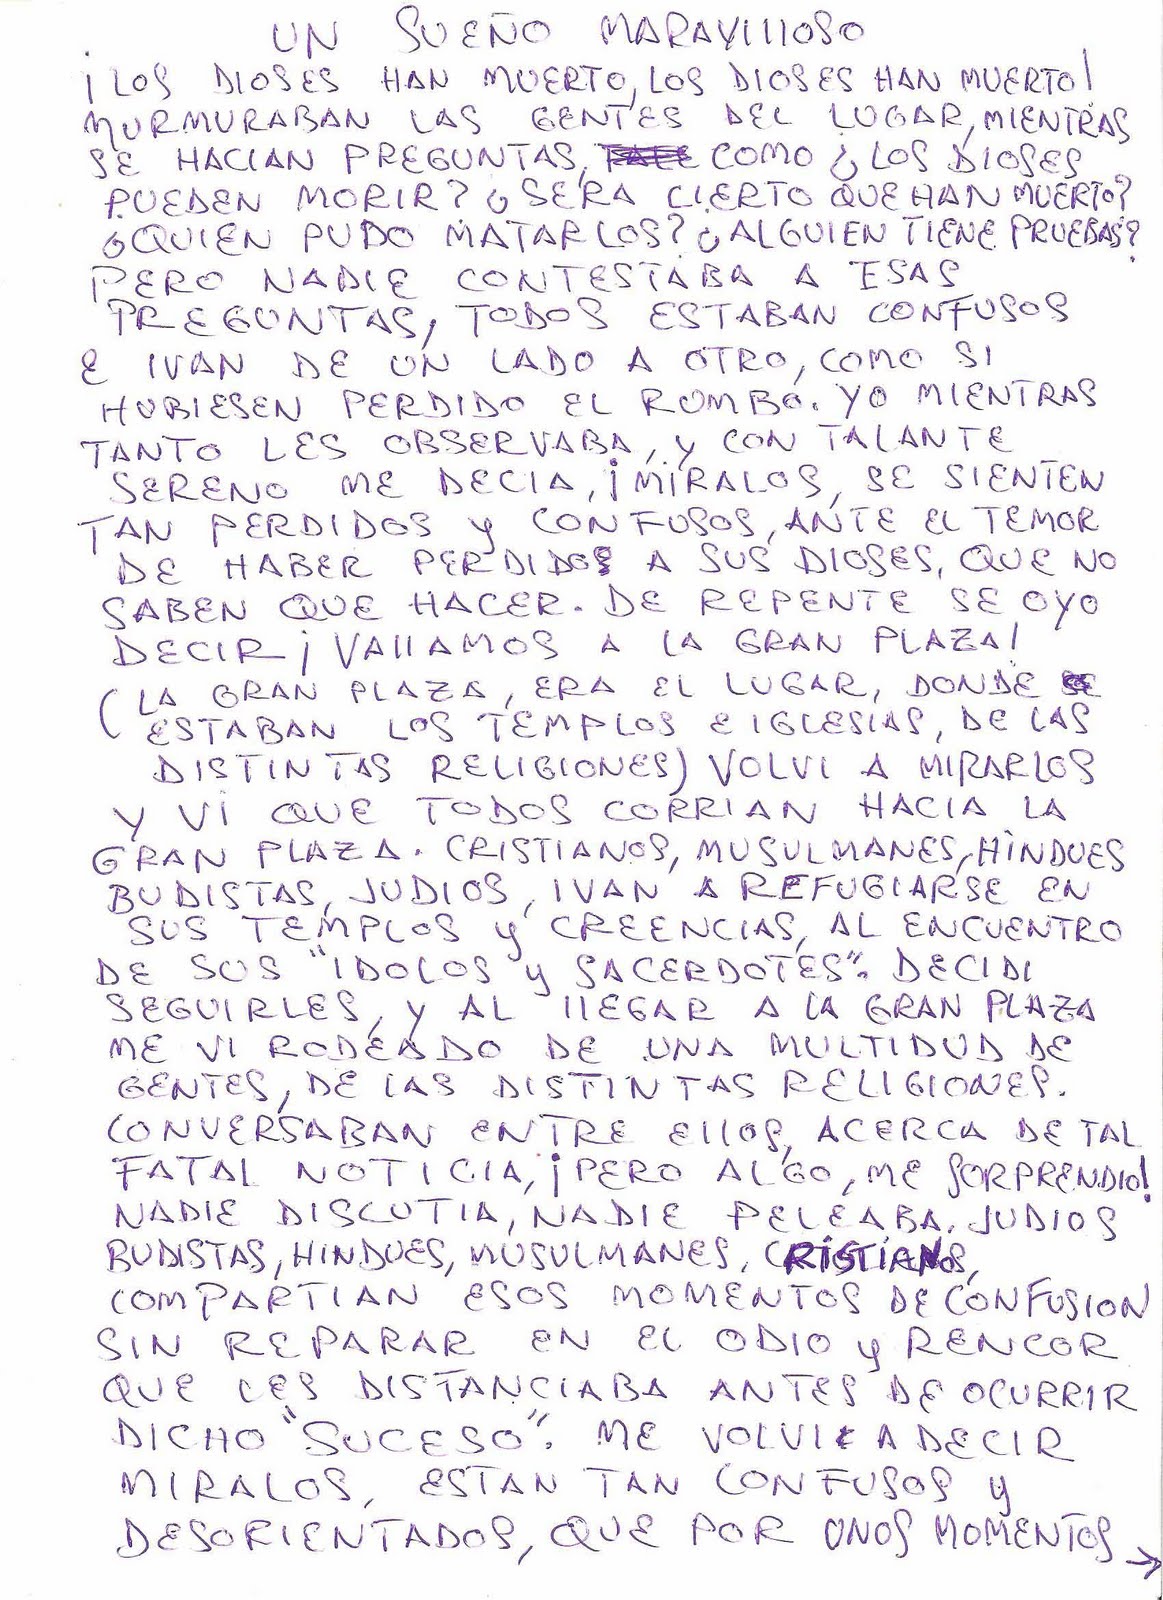 UN SUEÑO MARAVIllOSO
¡LOS DIOSES HAN MUERTO, LOS DIOSES HAN MUERTO!
MURMURABAN LAS GENTES DEL LUGAR, MIENTRAS
SE HACIAN PREGUNTAS, COMO ¿LOS DIOSES
PUEDEN MORIR? ¿SERA CIERTO QUE HAN MUERTO?
¿QUIEN PUDO MATARLOS? ¿ALGUIEN TIENE PRUEBAS?
PERO NADIE CONTESTABA A ESAS
PREGUNTAS, TODOS ESTABAN CONFUSOS
E IVAN DE UN LADO A OTRO, COMO SI
HUBIESEN PERDIDO EL RUMBO. YO MIENTRAS
TANTO LES OBSERVABA, Y CON TALANTE
SERENO ME DECIA, ¡MIRALOS, SE SIENTEN
TAN PERDIDOS Y CONFUSOS, ANTE EL TEMOR
DE HABER PERDIDOS A SUS DIOSES, QUE NO
SABEN QUE HACER. DE REPENTE SE OYO
DECIR ¡VAllAMOS A LA GRAN PLAZA!
(LA GRAN PLAZA, ERA EL LUGAR, DONDE
ESTABAN LOS TEMPLOS E IGLESIAS, DE LAS
DISTINTAS RELIGIONES) VOLVI A MIRARLOS
Y VI QUE TODOS CORRIAN HACIA LA
GRAN PLAZA. CRISTIANOS, MUSULMANES, HINDUES
BUDISTAS, JUDIOS, IVAN A REFUGIARSE EN
SUS TEMPLOS Y CREENCIAS, AL ENCUENTRO
DE SUS "IDOLOS Y SACERDOTES". DECIDI
SEGUIRLES, Y AL llEGAR A LA GRAN PLAZA
ME VI RODEADO DE UNA MULTIDUD DE
GENTES, DE LAS DISTINTAS RELIGIONES.
CONVERSABAN ENTRE EllOS, ACERCA DE TAL
FATAL NOTICIA, ¡PERO ALGO, ME SORPRENDIO!
NADIE DISCUTIA, NADIE PELEABA. JUDIOS
BUDISTAS, HINDUES, MUSULMANES, CRISTIANOS,
COMPARTIAN ESOS MOMENTOS DE CONFUSION
SIN REPARAR EN EL ODIO Y RENCOR
QUE LES DISTANCIABA ANTES DE OCURRIR
DICHO "SUCESO". ME VOLVI A DECIR
MIRALOS, ESTAN TAN CONFUSOS Y
DESORIENTADOS, QUE POR UNOS MOMENTOS →